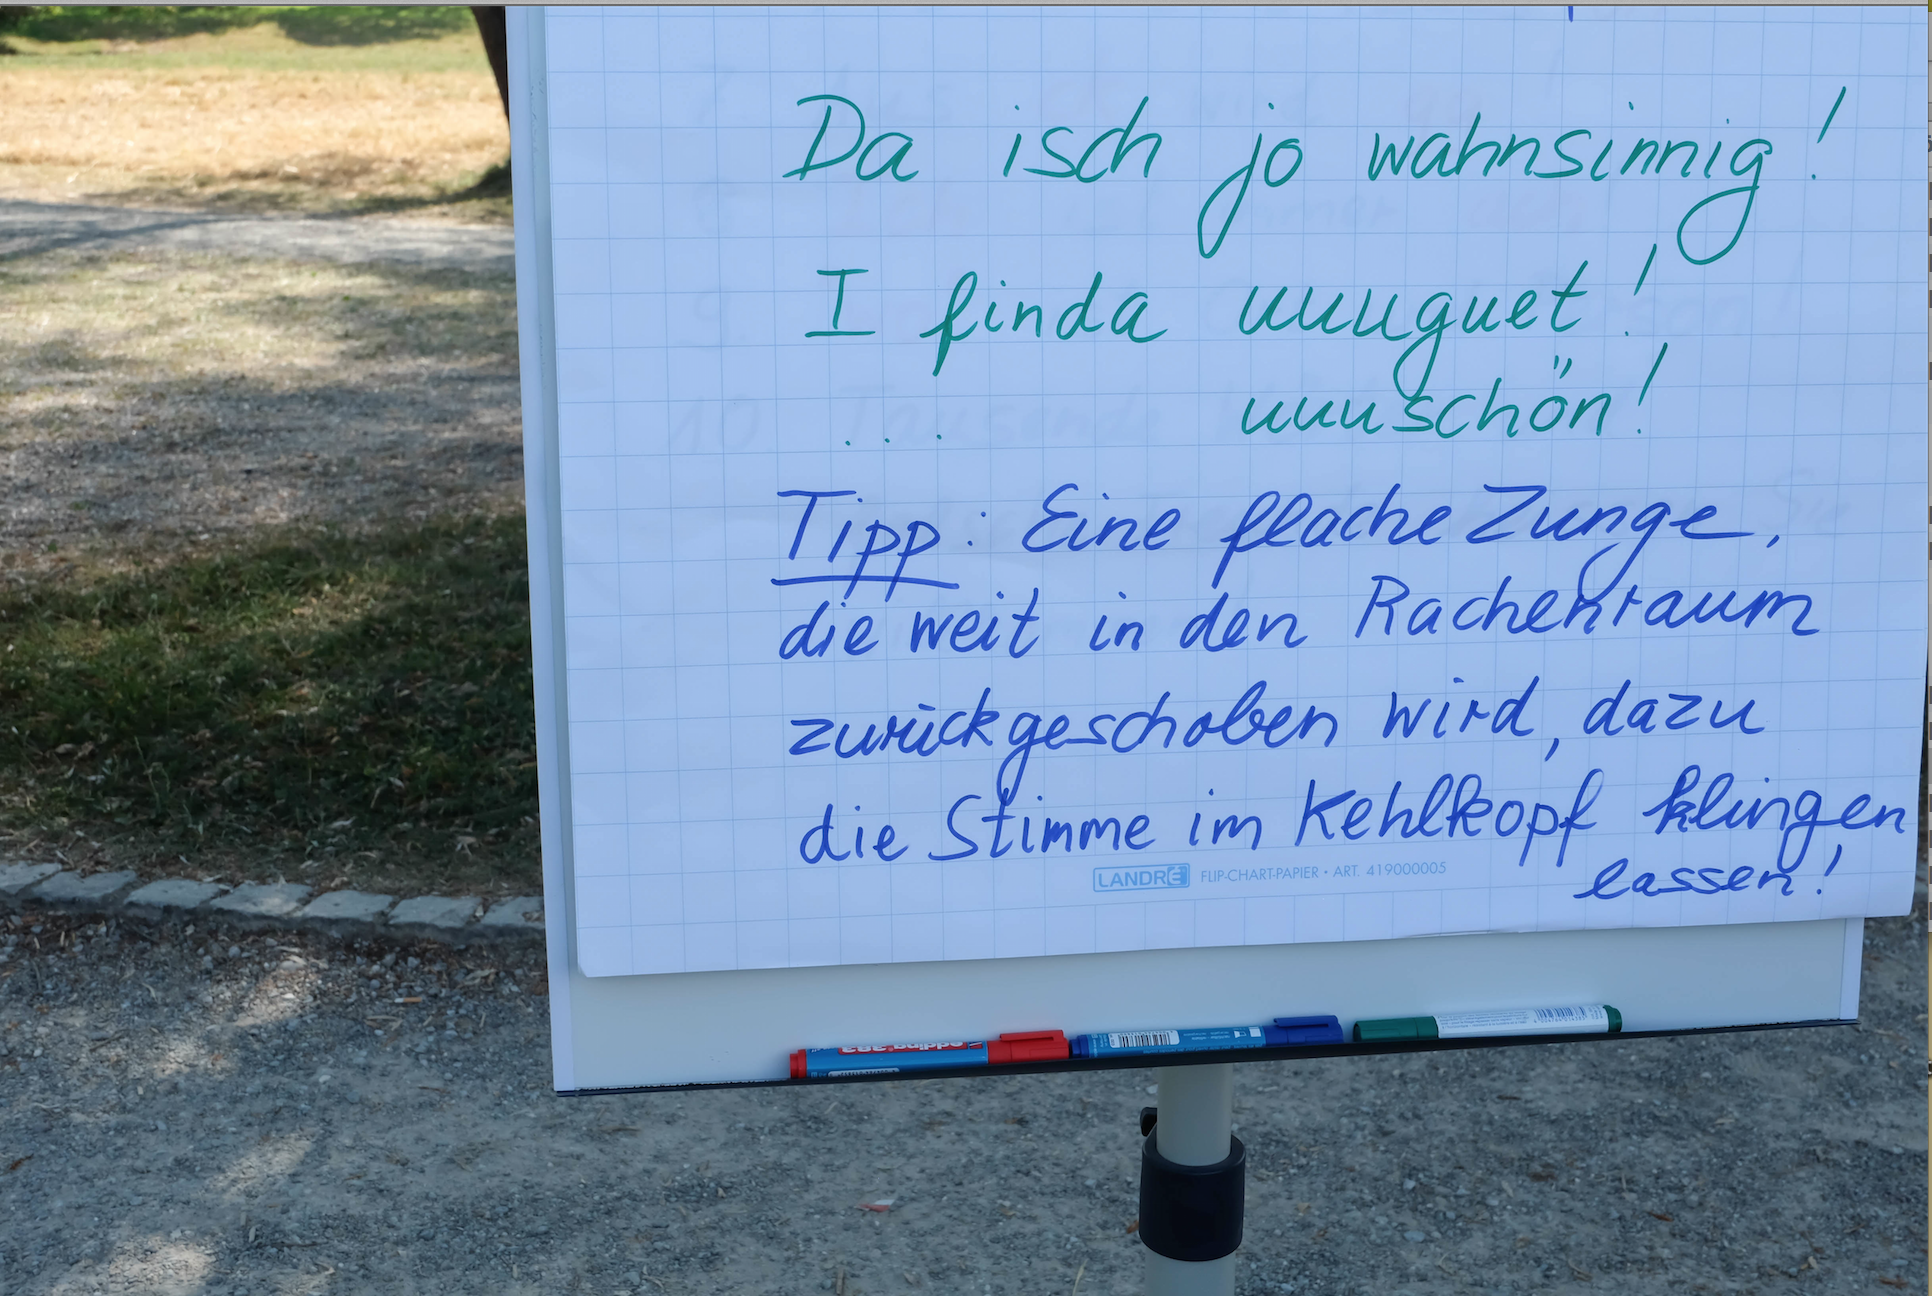 Da isch jo wahnsinnig!
I finda uuuguet!
... uuuschön!
Tipp: Eine flache Zunge,
die weit in den Rachenraum
zurückgeschoben wird, dazu
die Stimme im Kehlkopf klingen
lassen!
LANDRÉ FLIP-CHART-PAPIER • ART. 419000005
edding 383